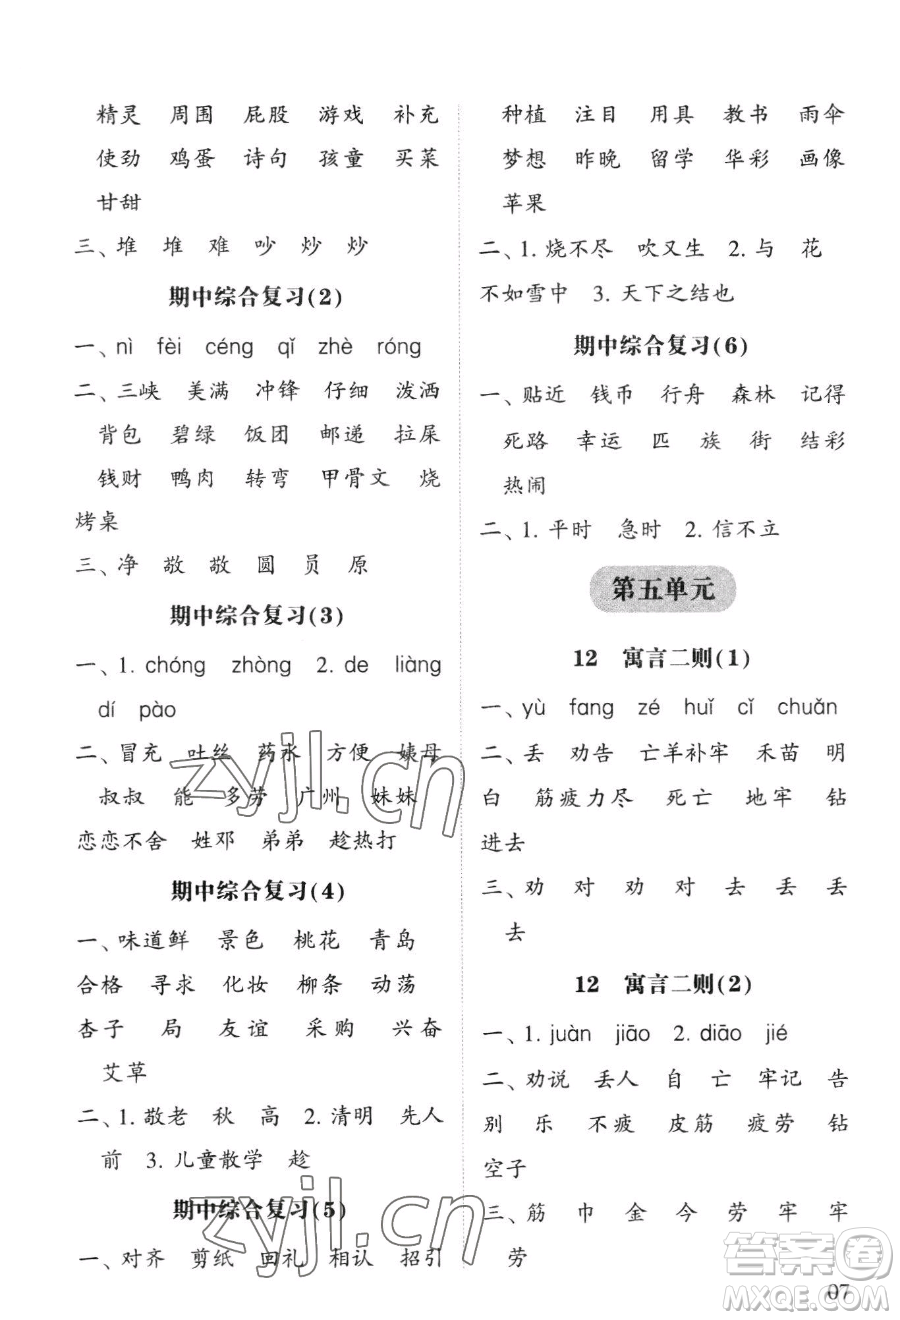 精灵 周围 屁股 游戏 补充
使劲 鸡蛋 诗句 孩童 买菜
甘甜
三、堆 堆 难 吵 炒 炒
期中综合复习(2)
一、nì fèi céng qǐ zhè róng
二、三峡 美满 冲锋 仔细 泼洒
背包 碧绿 饭团 邮递 拉屎
钱财 鸭肉 转弯 甲骨文 烧
烤桌
三、净 敬 敬 圆 员 原
期中综合复习(3)
一、1. chóng zhòng 2. de liàng
dí pào
二、冒充 吐丝 药水 方便 姨母
叔叔 能 多劳 广州 妹妹
恋恋不舍 姓邓 弟弟 趁热打
期中综合复习(4)
一、味道鲜 景色 桃花 青岛
合格 寻求 化妆 柳条 动荡
杏子 局 友谊 采购 兴奋
艾草
二、1. 敬老 秋 高 2. 清明 先人
前 3. 儿童散学 趁
期中综合复习(5)
一、对齐 剪纸 回礼 相认 招引
种植 注目 用具 教书 雨伞
梦想 昨晚 留学 华彩 画像
苹果
二、1. 烧不尽 吹又生 2. 与 花
不如雪中 3. 天下之结也
期中综合复习(6)
一、贴近 钱币 行舟 森林 记得
死路 幸运 匹 族 街 结彩
热闹
二、1. 平时 急时 2. 信不立
第五单元
12 寓言二则(1)
一、yù fang zé huǐ cǐ chuǎn
二、丢 劝告 亡羊补牢 禾苗 明
白 筋疲力尽 死亡 地牢 钻
进去
三、劝 对 劝 对 去 丢 丢
去
12 寓言二则(2)
一、1. juàn jiāo 2. diāo jié
二、劝说 丢人 自 亡 牢记 告
别 乐 不疲 皮筋 疲劳 钻
空子
三、筋 巾 金 今 劳 牢 牢
劳
07
zyjl.cn
zyjl.cn
答案圈
MXQE.COM